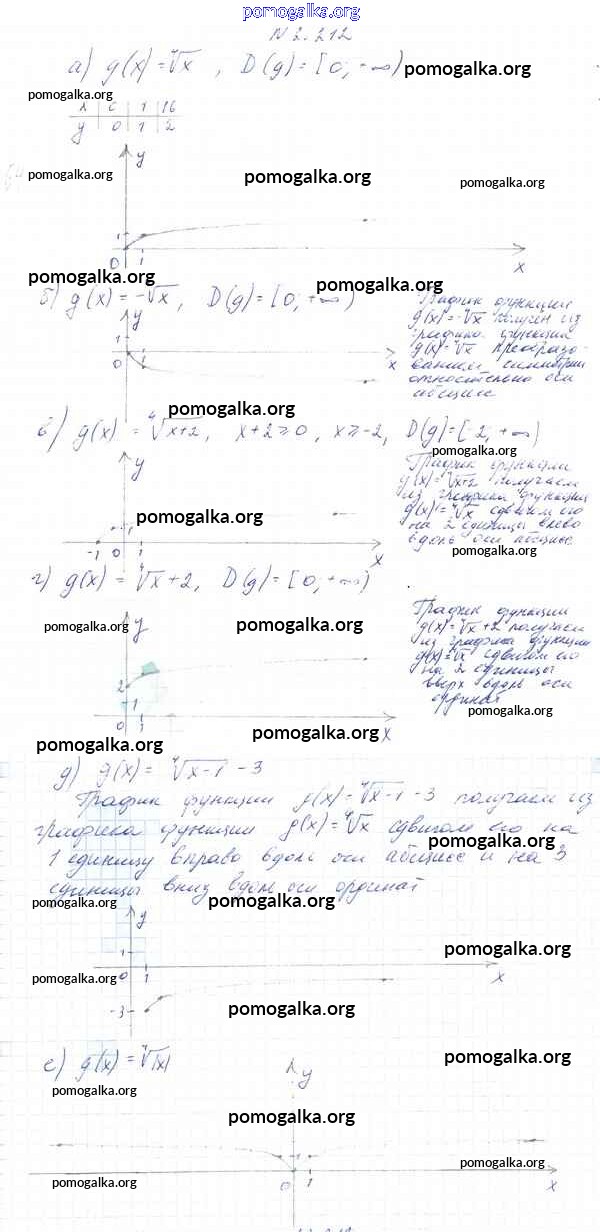 pomogalka.org
№ 2.212
а) g(x) = ⁴√x , D(g) = [0; +∞) pomogalka.org
pomogalka.org
x 0 1 16
y 0 1 2
y
pomogalka.org pomogalka.org pomogalka.org
1
0 1 x
pomogalka.org pomogalka.org
б) g(x) = -⁴√x , D(g) = [0; +∞)
График функции
g(x) = -⁴√x получен из
графика функции
g(x) = ⁴√x преобразо-
ванием симметрии
относительно оси
абсцисс
y
1
0 1 x
pomogalka.org
в) g(x) = ⁴√x+2, x+2≥0, x≥-2, D(g)=[-2; +∞)
pomogalka.org
График функции
g(x) = ⁴√x+2 получаем
из графика функции
g(x) = ⁴√x сдвигом его
на 2 единицы влево
вдоль оси абсцисс
pomogalka.org
y
pomogalka.org
1
-1 0 1 x
г) g(x) = ⁴√x + 2, D(g) = [0; +∞)
График функции
g(x) = ⁴√x + 2 получаем
из графика функции
g(x) = ⁴√x сдвигом его
на 2 единицы
вверх вдоль оси
ординат
pomogalka.org
pomogalka.org y pomogalka.org
2
1
0 1
pomogalka.org pomogalka.org x
д) g(x) = ⁴√x-1 - 3
График функции g(x) = ⁴√x-1 - 3 получаем из
графика функции g(x) = ⁴√x сдвигом его на
pomogalka.org
1 единицу вправо вдоль оси абсцисс и на 3
единицы вниз вдоль оси ординат
pomogalka.org pomogalka.org
y
1 pomogalka.org
0 1 x
pomogalka.org
-3 pomogalka.org
е) g(x) = ⁴√|x| pomogalka.org
pomogalka.org y
pomogalka.org
1
pomogalka.org
0 1 x
pomogalka.org pomogalka.org